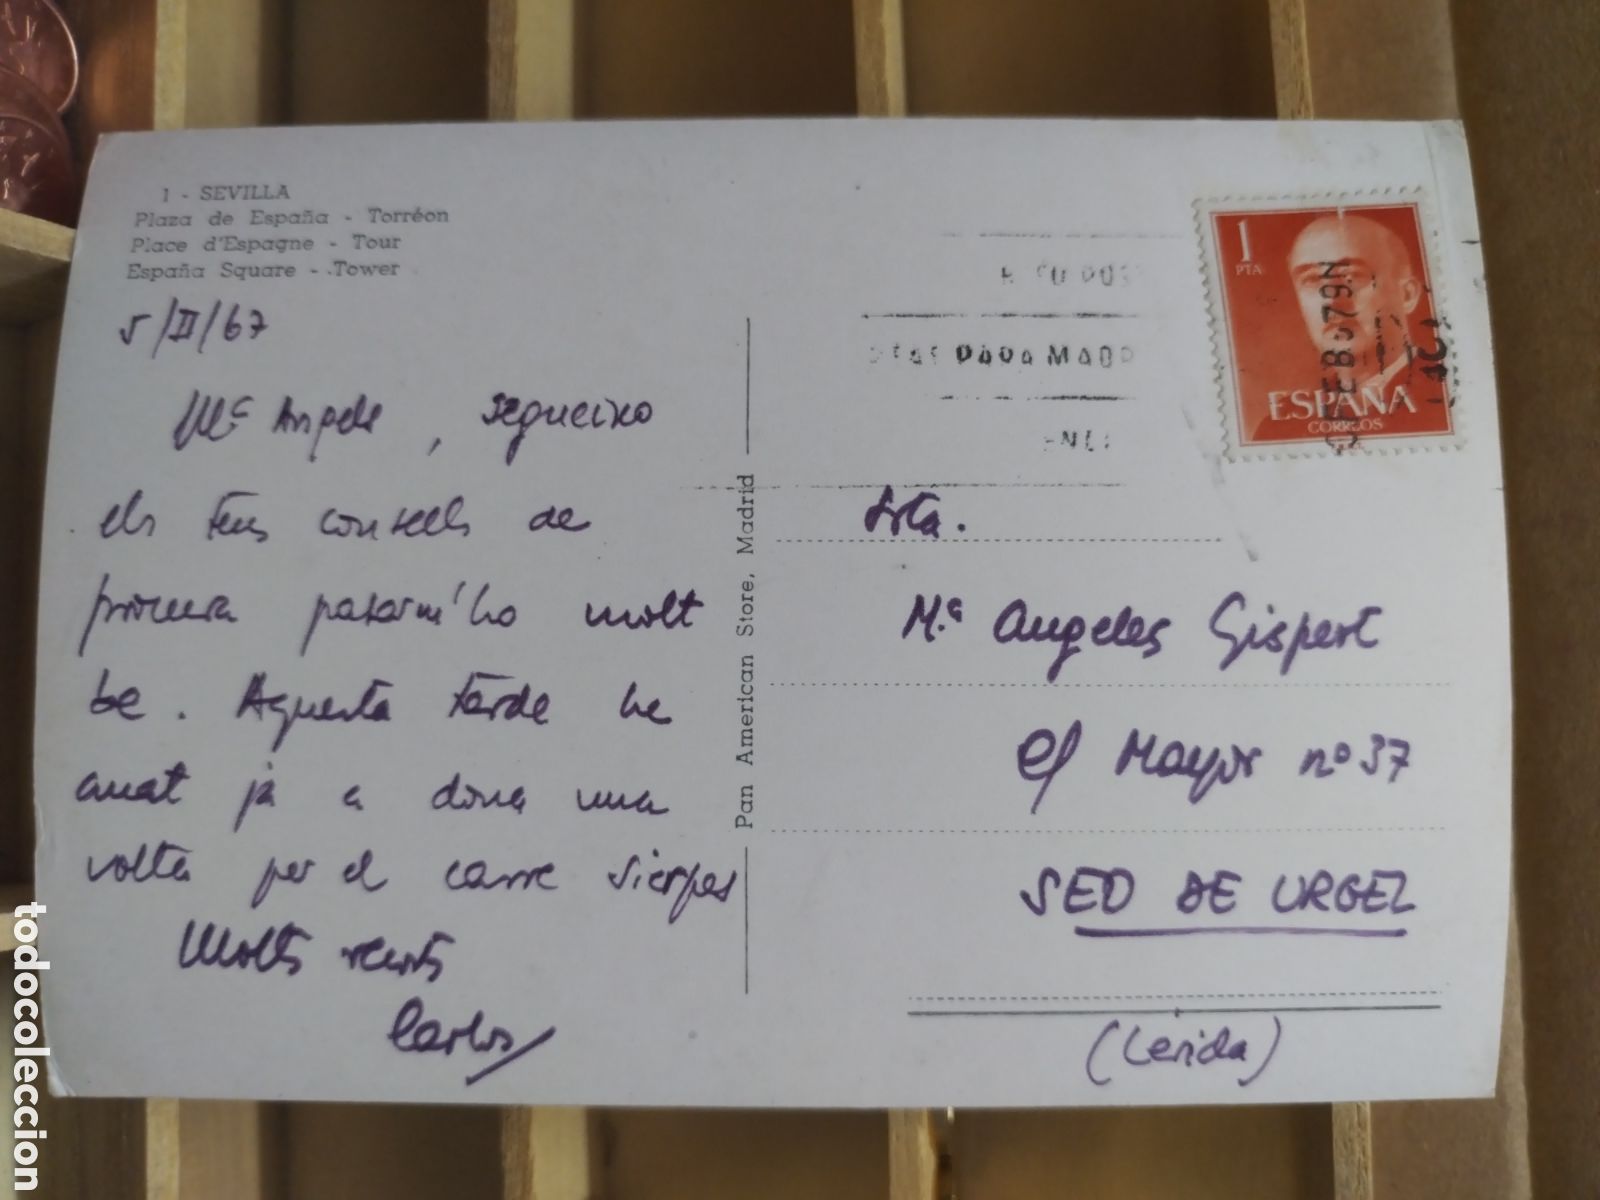 1 - SEVILLA
Plaza de España - Torréon
Place d'Espagne - Tour
España Square - Tower
5/II/67
Mª Angels, segueixo
els teus consells de
procurar passarm'ho molt
be. Aquesta tarde he
anat ja a dona una
volta per el carre Sierpes
Molts records
Carlos
Pan American Store, Madrid
1
PTA
ESPAÑA
CORREOS
Srta.
M.ª Angeles Gispert
c/ Mayor nº 37
SEO DE URGEL
(Lerida)
todocoleccion